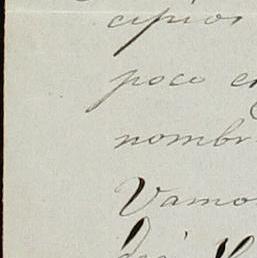 cipios
poco e
nombr
Vamo